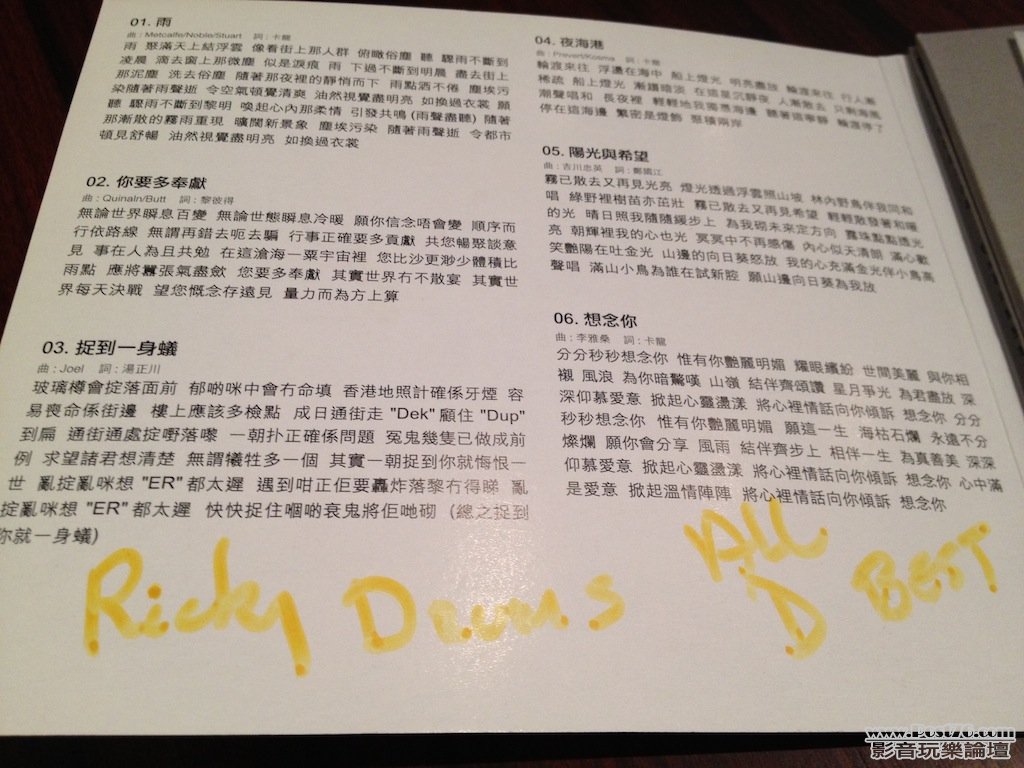 01. 雨
曲 : Metcalfe/Noble/Stuart 詞 : 卡龍
雨 聚滿天上結浮雲 像看街上那人群 俯瞰俗塵 聽 驟雨不斷到
凌晨 滴去窗上那微塵 似是淚痕 雨 下過不斷到明晨 盡去街上
那泥塵 洗去俗塵 隨著那夜裡的靜悄而下 雨點洒不倦 塵埃污
染隨著雨聲逝 令空氣頓覺清爽 油然視覺盡明亮 如換過衣裳 願
聽 驟雨不斷到黎明 喚起心內那柔情 引發共鳴 (雨聲盡聽) 隨著
那漸散的霧雨重現 曠闊新景象 塵埃污染 隨著雨聲逝 令都市
頓見舒暢 油然視覺盡明亮 如換過衣裳
02. 你要多奉獻
曲 : Quinaln/Butt 詞 : 黎彼得
無論世界瞬息百變 無論世態瞬息冷暖 願你信念唔會變 順序而
行依路線 無謂再錯去呃去騙 行事正確要多貢獻 共您暢聚談意
見 事在人為且共勉 在這滄海一粟宇宙裡 您比沙更渺少體積比
雨點 應將囂張氣盡斂 您要多奉獻 其實世界冇不散宴 其實世
界每天決戰 望您慨念存遠見 量力而為方上算
03. 捉到一身蟻
曲 : Joel 詞 : 湯正川
玻璃樽會掟落面前 郁啲咪中會冇命填 香港地照計確係牙煙 容
易喪命係街邊 樓上應該多檢點 成日通街走 "Dek" 顧住 "Dup"
到扁 通街通處掟嘢落嚟 一朝扑正確係問題 冤鬼幾隻已做成前
例 求望諸君想清楚 無謂犧牲多一個 其實一朝捉到你就悔恨一
世 亂掟亂咪想 "ER" 都太遲 遇到咁正佢要轟炸落黎冇得睇 亂
掟亂咪想 "ER" 都太遲 快快捉住嗰啲衰鬼將佢哋砌 (總之捉到
你就一身蟻)
04. 夜海港
曲 : Prevert/Kosma 詞 : 卡龍
輪渡來往 浮盪在海中 船上燈光 明亮盡放 輪渡來往 行人漸
稀疏 船上燈光 漸趨暗淡 在這是沉靜夜 人漸散去 只剩海風
潮聲唱和 長夜裡 輕輕地我獨憑海邊 聽著這寧靜 輪渡停了
停在這海邊 繁密是燈飾 聚積兩岸
05. 陽光與希望
曲 : 吉川忠英 詞 : 鄭國江
霧已散去又再見光亮 燈光透過浮雲照山坡 林內野鳥伴我同和
唱 綠野裡樹苗亦茁壯 霧已散去又再見希望 輕輕散發著和暖
的光 晴日照我隨隨緩步上 為我砌未來定方向 露珠點點透光
亮 朝輝裡我的心也光 冥冥中不再感傷 內心似天清朗 滿心歡
笑艷陽在吐金光 山邊的向日葵怒放 我的心充滿金光伴小鳥高
聲唱 滿山小鳥為誰在試新腔 願山邊向日葵為我放
06. 想念你
曲 : 李雅桑 詞 : 卡龍
分分秒秒想念你 惟有你艷麗明媚 耀眼繽紛 世間美麗 與你相
襯 風浪 為你暗驚嘆 山嶺 結伴齊頌讚 星月爭光 為君盡放 深
深仰慕愛意 掀起心靈盪漾 將心裡情話向你傾訴 想念你 分分
秒秒想念你 惟有你艷麗明媚 願這一生 海枯石爛 永遠不分
燦爛 願你會分享 風雨 結伴齊步上 相伴一生 為真善美 深深
仰慕愛意 掀起心靈盪漾 將心裡情話向你傾訴 想念你 心中滿
是愛意 掀起溫情陣陣 將心裡情話向你傾訴 想念你
Ricky Drums
ALL
D BEST
www.Post76.com
影音玩樂論壇